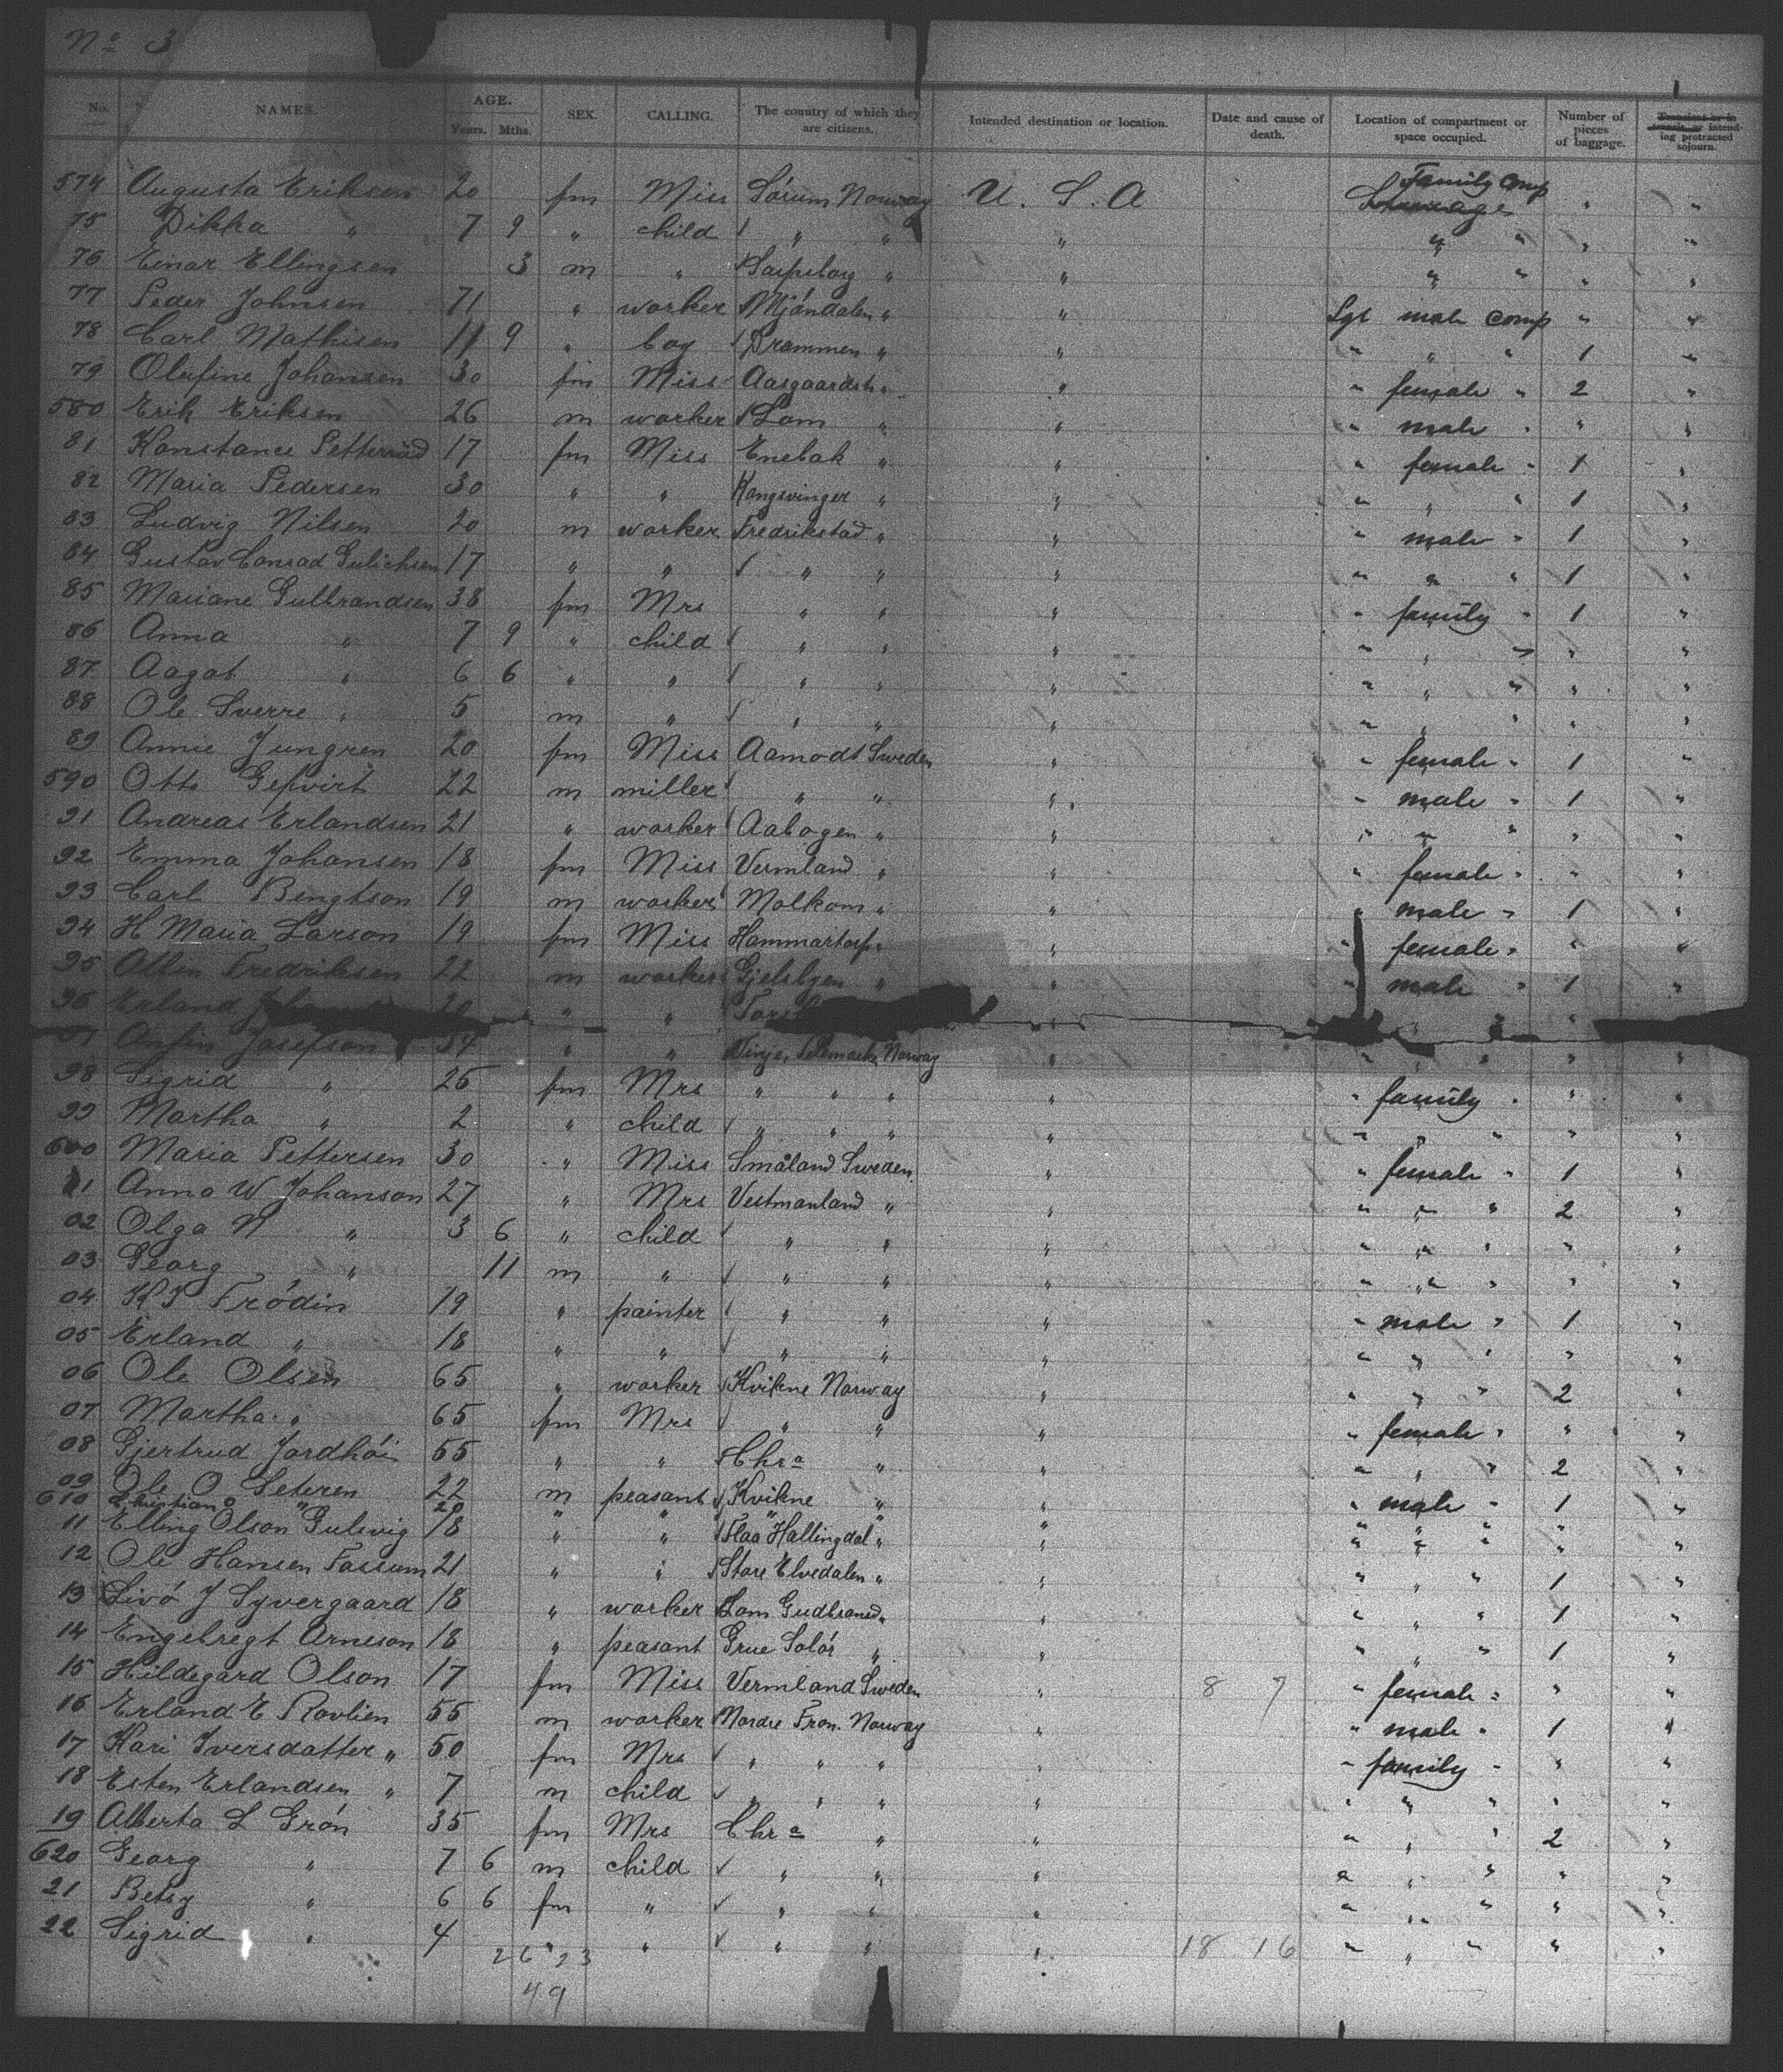 No 3
No. NAMES. AGE. Years. Mths. SEX. CALLING. The country of which they are citizens. Intended destination or location. Date and cause of death. Location of compartment or space occupied. Number of pieces of baggage. intending protracted sojourn.
574 Augusta Eriksen 20 fm Miss Sörum Norway U. S. A Family Comp " "
75 Dikka " 7 9 " child " " " " " " "
76 Einar Ellingsen 3 m " " " " " " "
77 Peder Johnsen 71 " worker Mjöndalen " " Sgl male comp " "
78 Carl Mathisen 11 9 " boy Drammen " " " " " 1 "
79 Olufine Johansen 30 fm Miss Aasgaardstr " " " female " 2 "
580 Erik Eriksen 26 m worker Lom " " " male " " "
81 Konstance Petterüd 17 fm Miss Enebak " " " female " 1 "
82 Maria Pedersen 30 " " Kongsvinger " " " " " 1 "
83 Ludvig Nilsen 20 m worker Fredrikstad " " " male " 1 "
84 Gustav Conrad Gulichsen 17 " " " " " " " " 1 "
85 Mariane Gulbrandsen 38 fm Mrs " " " " family " 1 "
86 Anna " 7 9 " child " " " " " " " "
87 Aagot " 6 6 " " " " " " " " " "
88 Ole Sverre " 5 m " " " " " " " " "
89 Annie Jungren 20 fm Miss Aamodt Sweden " " female " 1 "
590 Otto 22 m miller " " " " male " 1 "
91 Andreas Erlandsen 21 " worker Aabogen " " " " " " "
92 Emma Johansen 18 fm Miss Vermland " " " female " " "
93 Carl Bengtson 19 m worker Molkom " " " male " 1 "
94 H Maria Larson 19 fm Miss Hammartorp " " " female " " "
95 Fredriksen 22 m worker Gjelsbyen " " " male " 1 "
96 Erland 20 " " " "
Anfin Josefson 34 " " Vinje, Telemarke Norway " " " " "
98 Sigrid " 25 fm Mrs " " " " " family " " "
99 Martha " 2 " child " " " " " " " " "
600 Maria Pettersen 30 " Miss Småland Sweden " " female " 1 "
1 Anna W Johanson 27 " Mrs Vestmanland " " " " " 2 "
02 Olga N " 3 6 " child " " " " " " " "
03 Georg " 11 m " " " " " " " " "
04 K J Frödin 19 " painter " " " " male " 1 "
05 Erland " 18 " " " " " " " " " "
06 Ole Olsen 65 " worker Kvikne Norway " " " " 2 "
07 Martha " 65 fm Mrs " " " " female " " "
08 Gjertrud Jordhöi 55 " " Chra " " " " " 2 "
09 Ole O Seteren 22 m peasant Kvikne " " " male " 1 "
610 Christian O " 20 " " " " " " " " " "
11 Elling Olson Gulsvig 18 " " Flaa Hallingdal " " " " " " "
12 Ole Hansen Fossum 21 " " Store Elvedalen " " " " " 1 "
13 Livö J Syvergaard 18 " worker Lom Gudbrand " " " " " 1 "
14 Engebregt Arneson 18 " peasant Grue Solör " " " " " 1 "
15 Hildegard Olson 17 fm Miss Vermland Sweden " 8 7 " female " " "
16 Erland E Rovlien 55 m worker Nordre Fron. Norway " " male " 1 "
17 Kari Iversdatter " 50 fm Mrs " " " " " family " " "
18 Esten Erlandsen " 7 m child " " " " " " " " "
19 Alberta L Grön 35 fm Mrs Chra " " " " " 2 "
620 Georg " 7 6 m child " " " " " " " "
21 Betsy " 6 6 fm " " " " " " " " "
22 Sigrid " 4 " " " " " 18 16 " " " " "
26 23
49